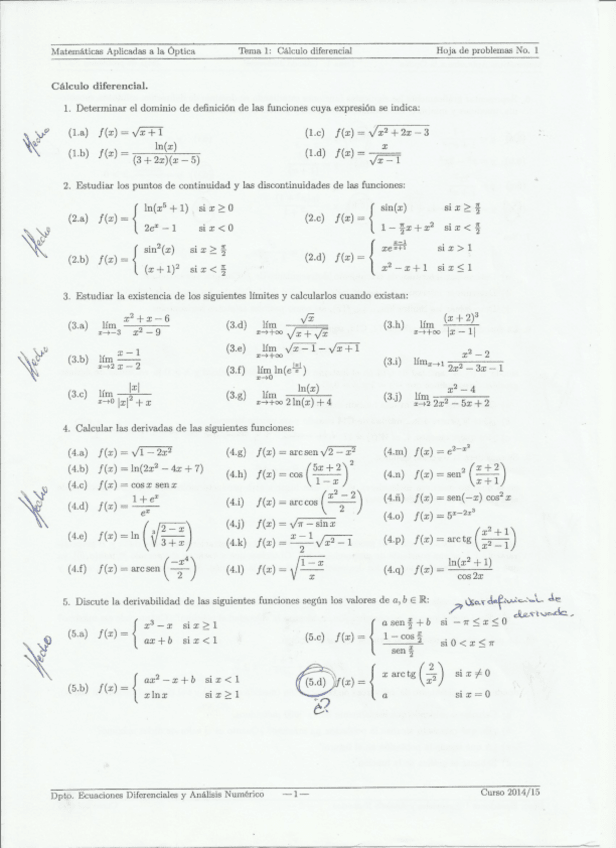 Matemáticas Aplicadas a la Óptica Tema 1: Cálculo diferencial Hoja de problemas No. 1
Cálculo diferencial.
1. Determinar el dominio de definición de las funciones cuya expresión se indica:
Hecho
(1.a) f(x) = √(x + 1) (1.c) f(x) = √(x² + 2x − 3)
(1.b) f(x) = ln(x) / ((3 + 2x)(x − 5)) (1.d) f(x) = x / √(x − 1)
2. Estudiar los puntos de continuidad y las discontinuidades de las funciones:
Hecho
(2.a) f(x) = { ln(x⁵ + 1) si x ≥ 0 (2.c) f(x) = { sin(x) si x ≥ π/2
2eˣ − 1 si x < 0 1 − π/2 x + x² si x < π/2
(2.b) f(x) = { sin²(x) si x ≥ π/2 (2.d) f(x) = { xe^((x−1)/(x+1)) si x > 1
(x + 1)² si x < π/2 x² − x + 1 si x ≤ 1
3. Estudiar la existencia de los siguientes límites y calcularlos cuando existan:
Hecho
(3.a) lím x→−3 (x² + x − 6)/(x² − 9) (3.d) lím x→+∞ √x / √(x + √x) (3.h) lím x→+∞ (x + 2)³/|x − 1|
(3.b) lím x→2 (x − 1)/(x − 2) (3.e) lím x→+∞ √(x − 1) − √(x + 1) (3.i) lím x→1 (x² − 2)/(2x² − 3x − 1)
(3.c) lím x→0 |x|/(|x|² + x) (3.f) lím x→0 ln(e^(|x|/x)) (3.j) lím x→2 (x² − 4)/(2x² − 5x + 2)
(3.g) lím x→+∞ ln(x)/(2 ln(x) + 4)
4. Calcular las derivadas de las siguientes funciones:
Hecho
(4.a) f(x) = √(1 − 2x²) (4.g) f(x) = arc sen √(2 − x²) (4.m) f(x) = e^(2−x²)
(4.b) f(x) = ln(2x² − 4x + 7) (4.h) f(x) = cos ((5x + 2)/(1 − x))² (4.n) f(x) = sen² ((x + 2)/(x + 1))
(4.c) f(x) = cos x sen x (4.i) f(x) = arc cos ((x² − 2)/2) (4.ñ) f(x) = sen(−x) cos² x
(4.d) f(x) = (1 + eˣ)/eˣ (4.j) f(x) = √(π − sin x) (4.o) f(x) = 5^(x−2x³)
(4.e) f(x) = ln (∛((2 − x)/(3 + x))) (4.k) f(x) = (x − 1)/2 √(x² − 1) (4.p) f(x) = arc tg ((x² + 1)/(x² − 1))
(4.f) f(x) = arc sen (−x⁴/2) (4.l) f(x) = √((1 − x)/x) (4.q) f(x) = ln(x² + 1)/cos 2x
5. Discute la derivabilidad de las siguientes funciones según los valores de a, b ∈ ℝ:
→ Usar definición de derivada.
Hecho
(5.a) f(x) = { x³ − x si x ≥ 1 (5.c) f(x) = { a sen x/2 + b si −π ≤ x ≤ 0
ax + b si x < 1 (1 − cos x/2)/(sen x/2) si 0 < x ≤ π
(5.b) f(x) = { ax² − x + b si x < 1 (5.d) f(x) = { x arc tg (2/x²) si x ≠ 0
x ln x si x ≥ 1 a si x = 0
¿?
Dpto. Ecuaciones Diferenciales y Análisis Numérico —1— Curso 2014/15